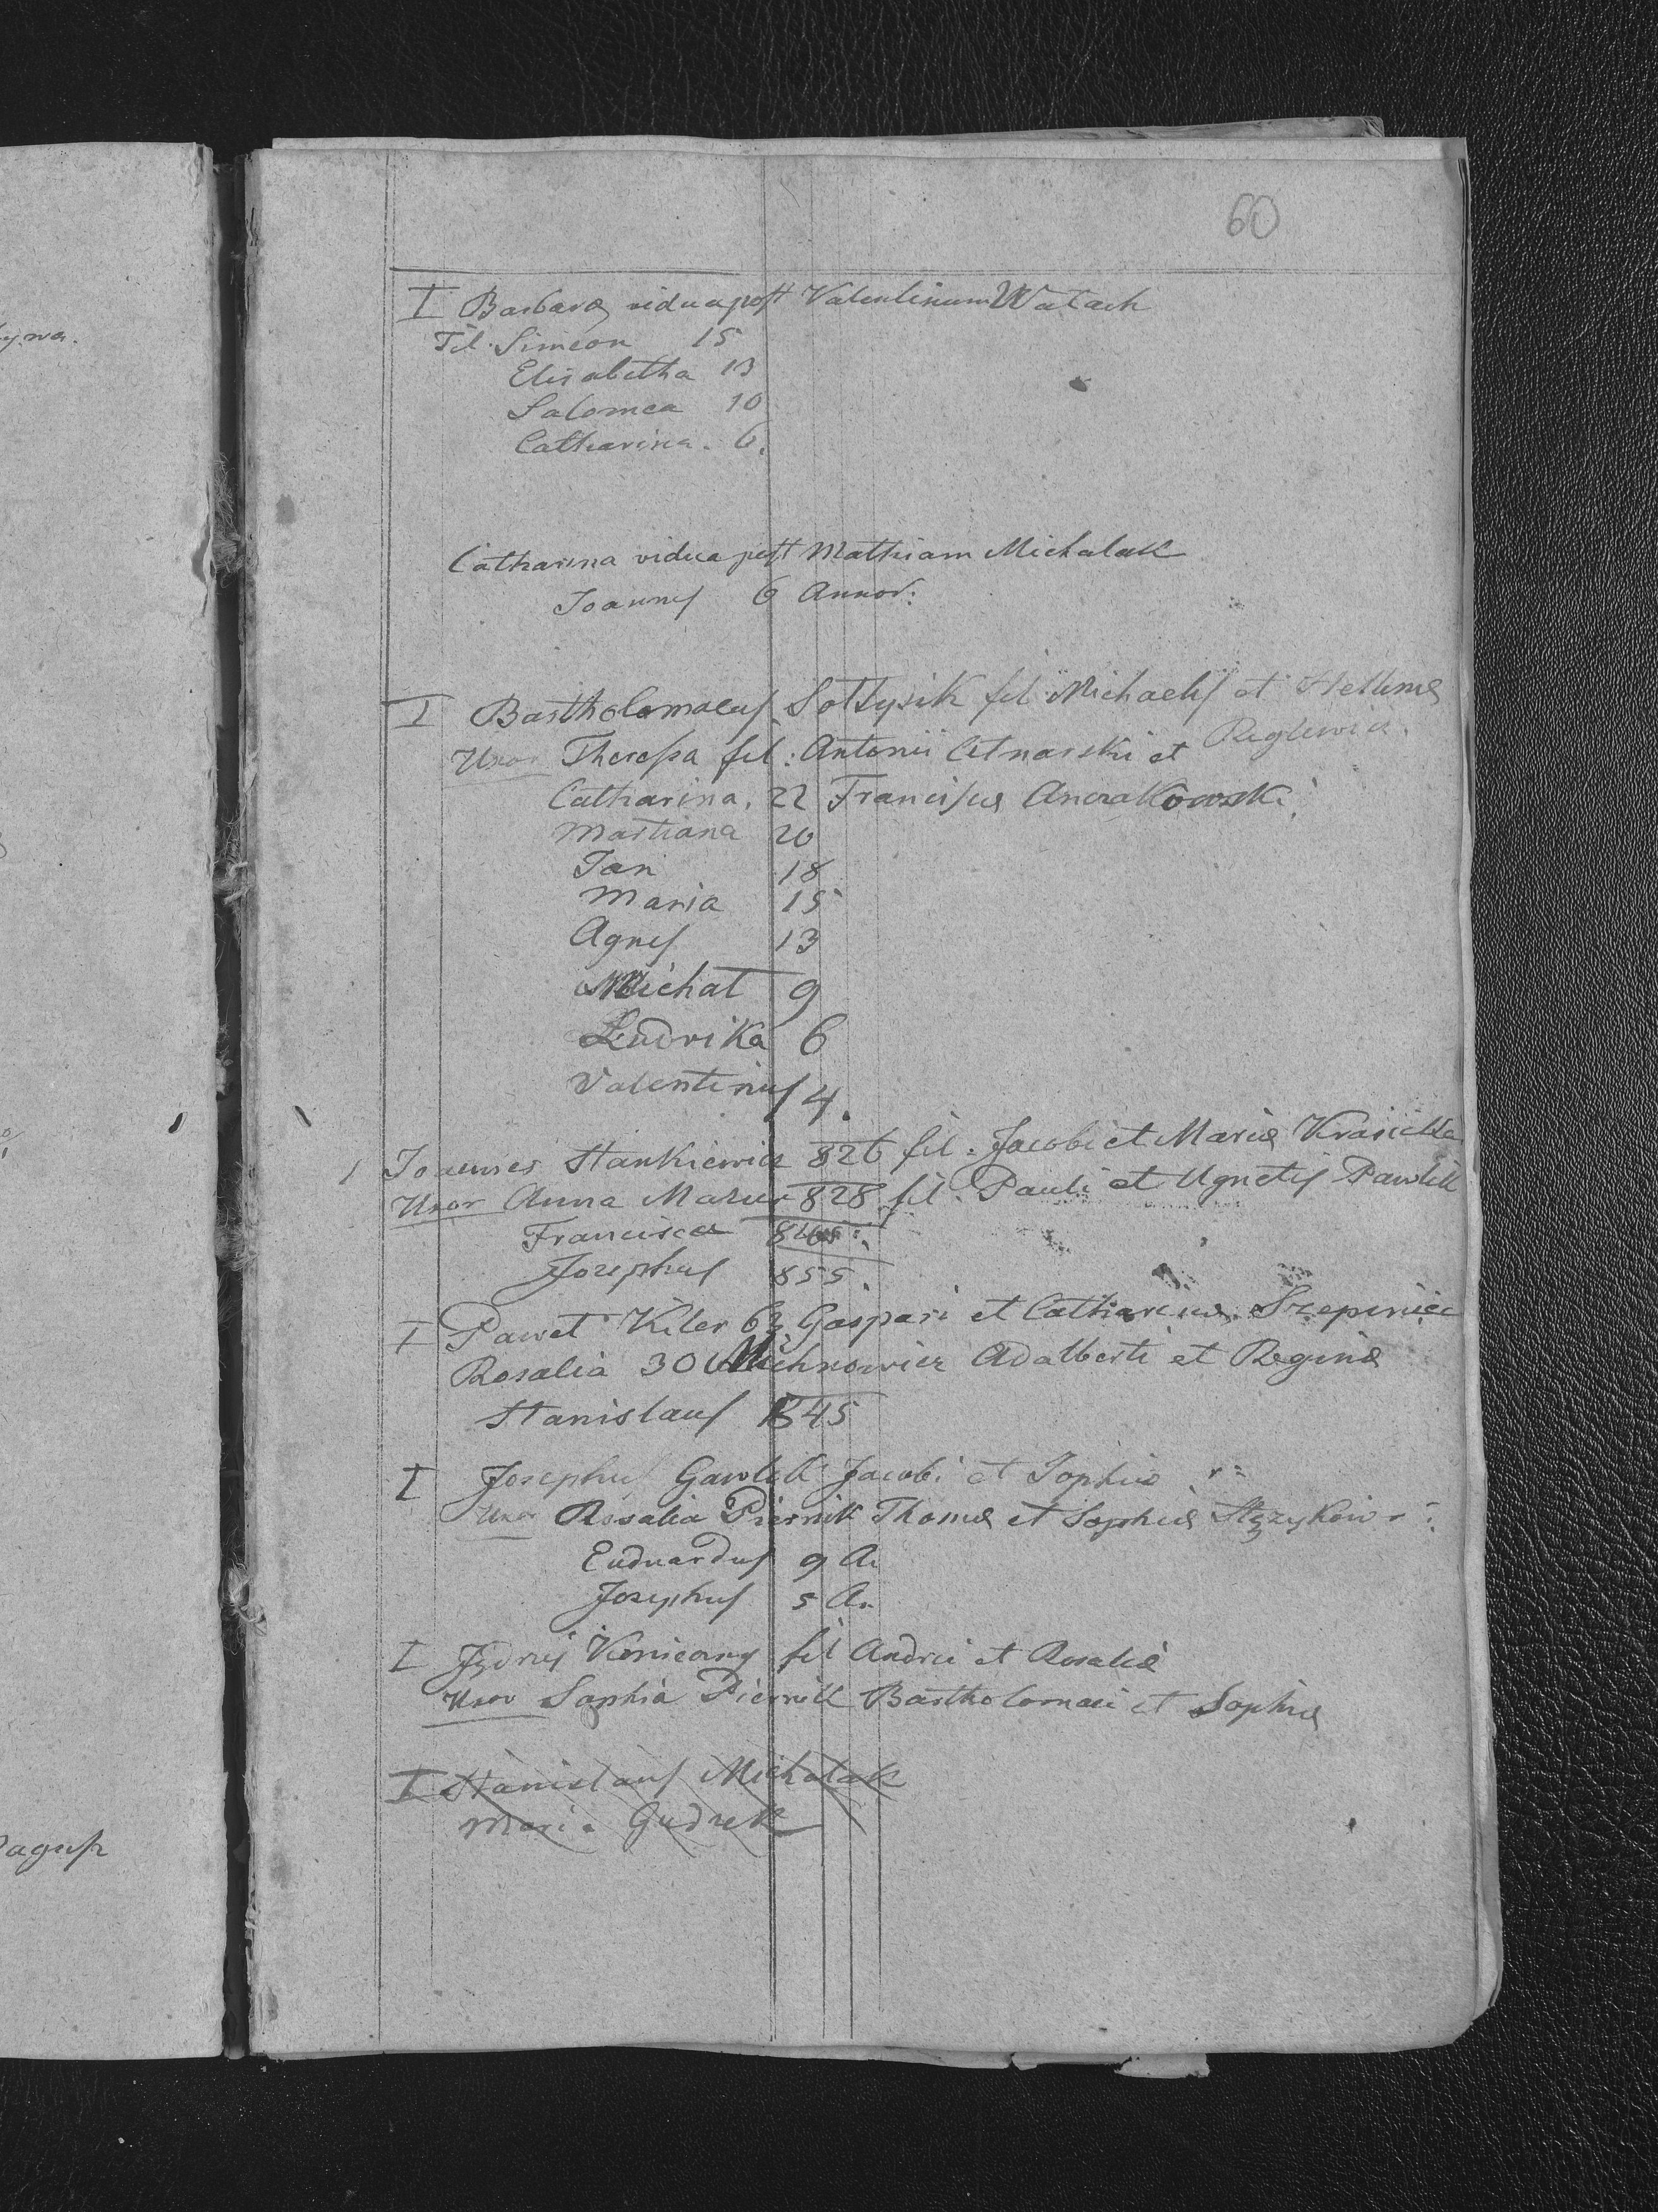 60
I Barbara vidua post Valentinum Watach
Fil. Simeon 15
Elisabetha 13
Salomea 10
Catharina. 6.
Catharina vidua post Mathiam Michalak
Joannes 6 Annor:
I Bartholomaeus Sołtysik fil Michaelis et Hellenæ
Reglewicz.
Uxor Theressa fil: Antonii Cetnarski et
Catharina. 22 Franciscæ Anczakowski
Martiana 20
Jan 18
Maria 15
Agnes 13
Michał 9
Ludvika 6
Valentinus 4.
I Joannes Stankiewicz 826 fil. Jacobi et Mariæ Krasicka
Uxor Anna Mazur 828 fil. Pauli et Agnetis Pawlik
Francisca
Josephus 855.
I Paweł Kiler 63 Gaspari et Catharinæ Szepiniec
Rosalia 30 Michnowicz Adalberti et Reginæ
Stanislaus 845
I Josephus Gawlik Jacobi et Sophiæ
Uxor Rosalia Piernik Thomæ et Sophiæ
Eudvardus 9 A.
Josephus 5 A.
I Jędrzej fil Andrei et Rosaliæ
Uxor Sophia Piernik Bartholomaei et Sophiæ
I Stanislaus Michalak
Maria Gudzek
ywa.